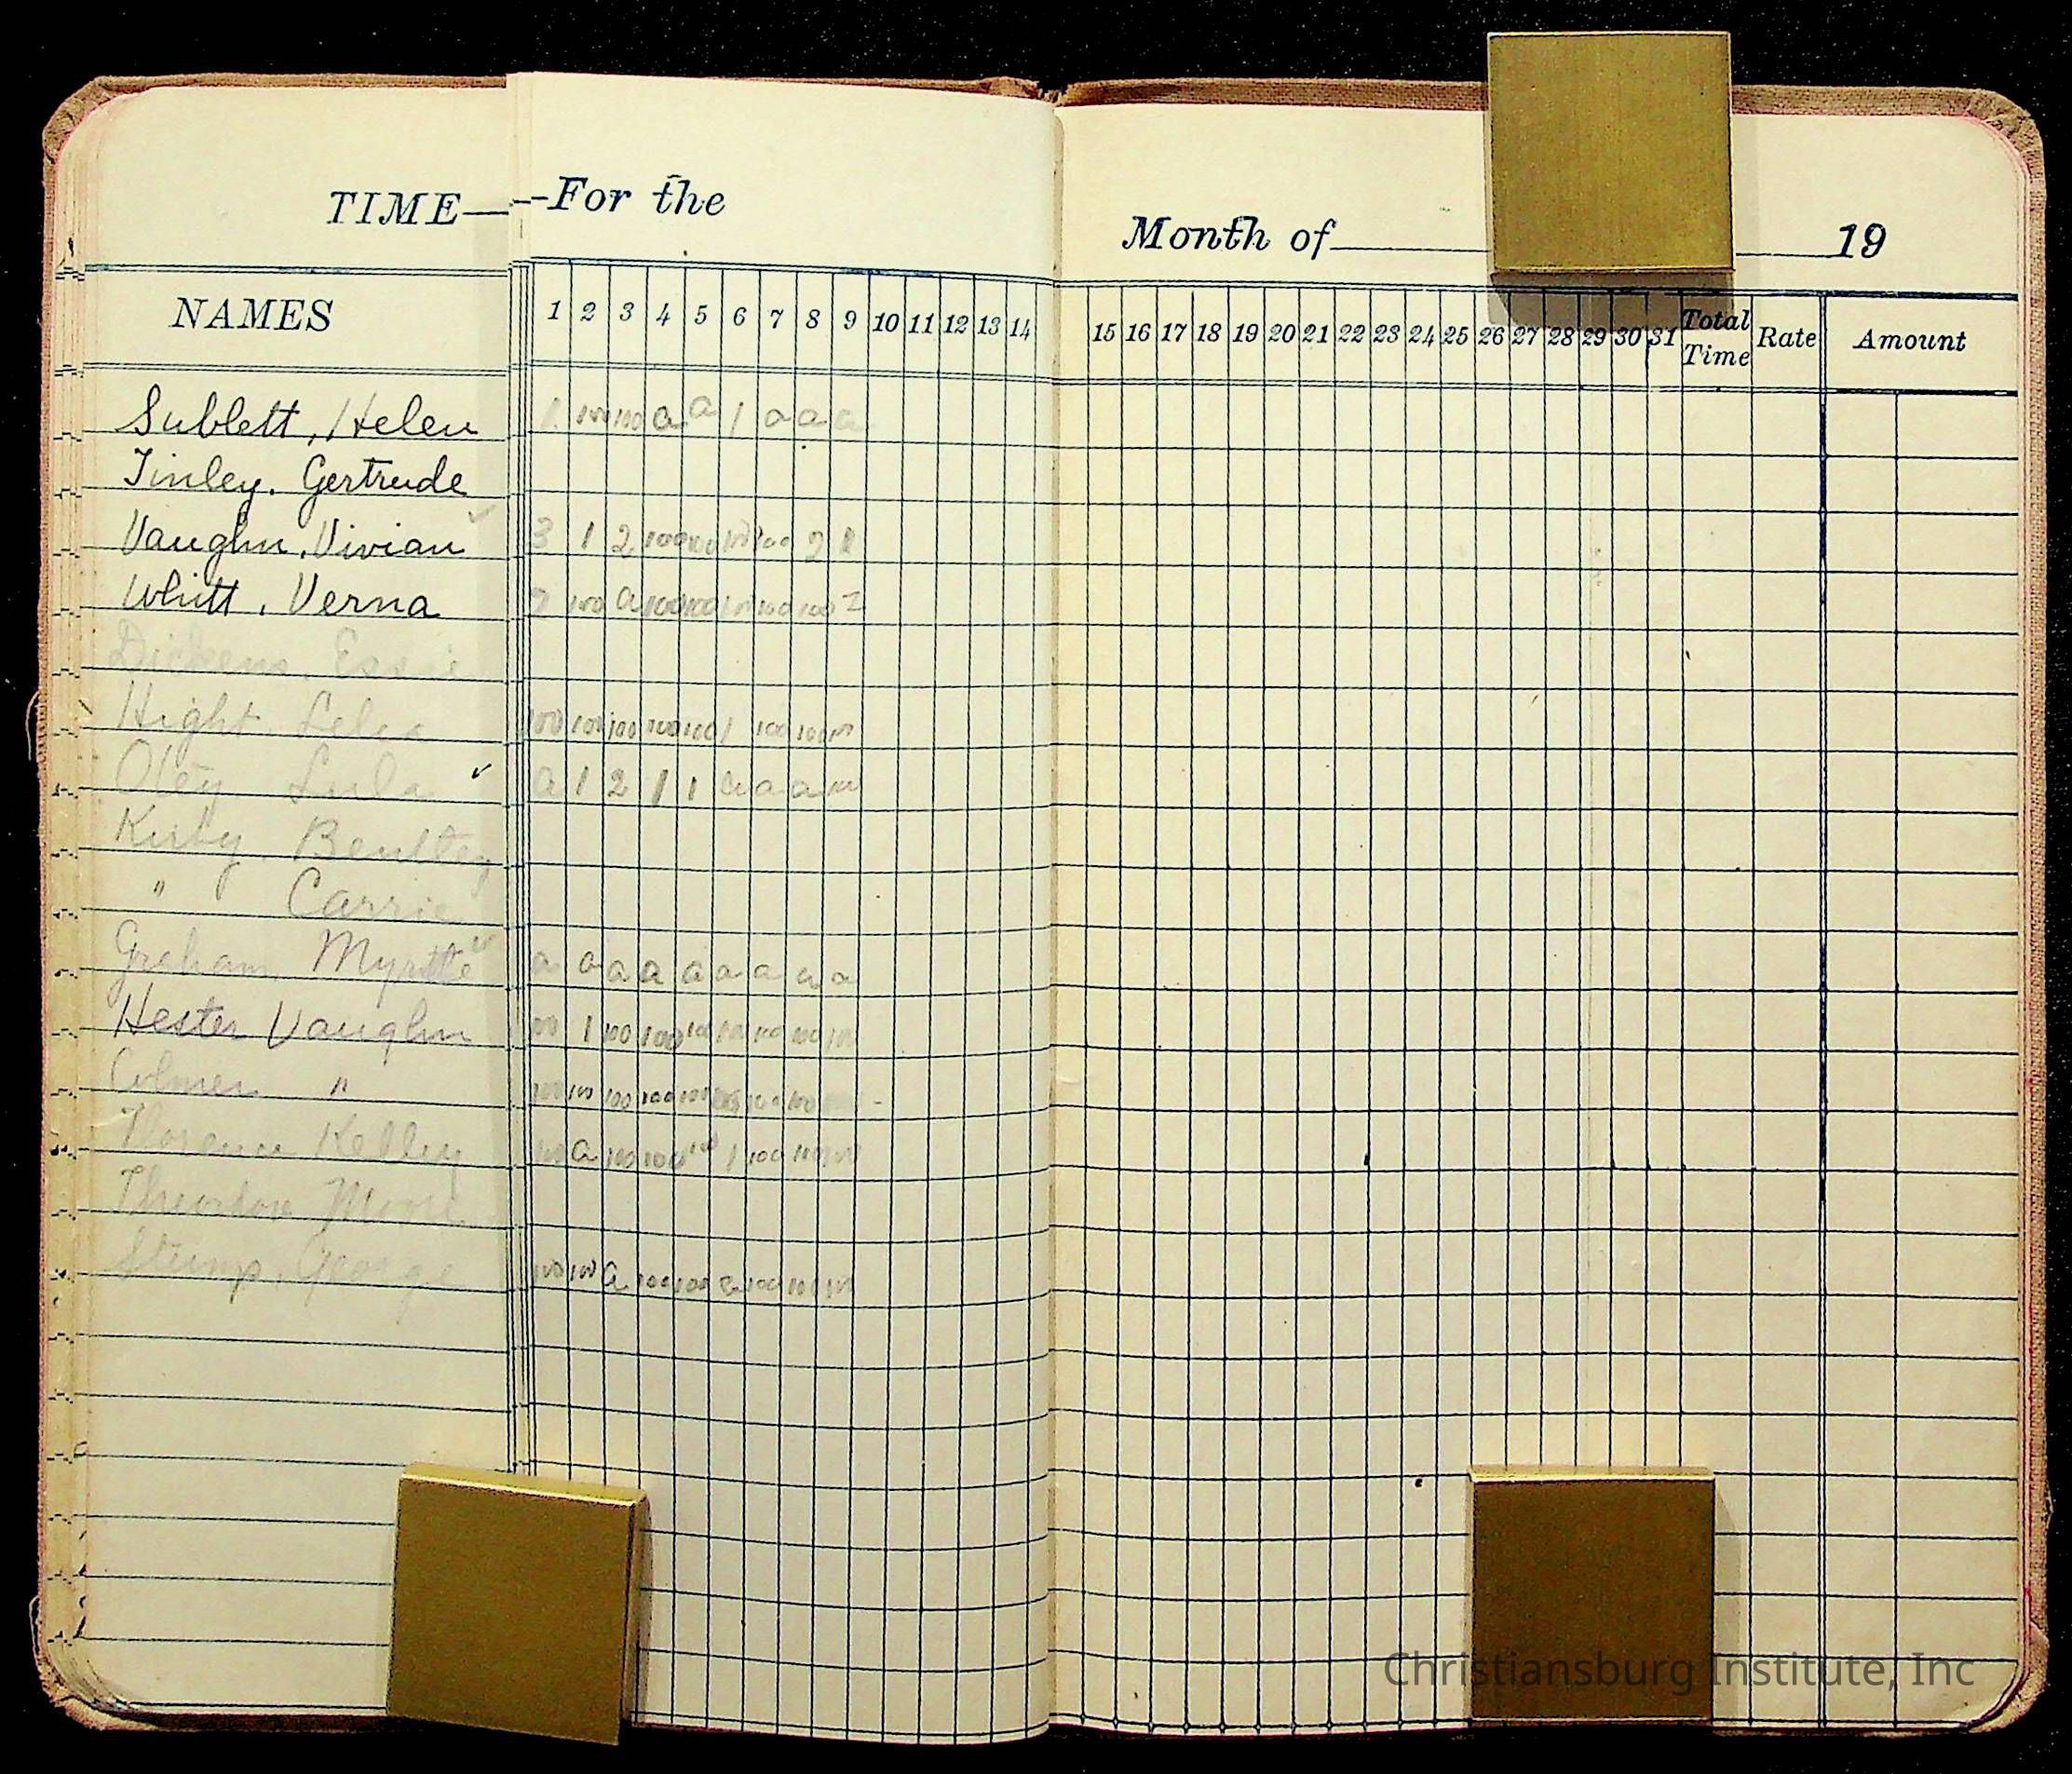 TIME— —For the Month of 19
NAMES 1 2 3 4 5 6 7 8 9 10 11 12 13 14 15 16 17 18 19 20 21 22 23 24 25 26 27 28 29 30 31 Total Time Rate Amount
Sublett, Helen 1 100 100 a a 1 a a a
Tinley, Gertrude
Vaughn, Vivian 3 1 2 100 100 100 100 2 1
Whitt, Verna 100 a 100 100 100 100 100
Dickens, Essie
Hight, Lelia 100 100 100 100 100 1 100 100
Otey Lula a 1 2 1 1 a a a 100
Kirby, Bentley
" Carrie
Graham, Myrtle a a a a a a a a a
Hester Vaughn 100 1 100 100 100 100 100 100 100
" 100 100 100 100 100 100 100
Florence Kelley 100 a 100 100 100 1 100 100 100
Moore
Stump, George 100 100 a 100 100 2 100 100 100
Christiansburg Institute, Inc